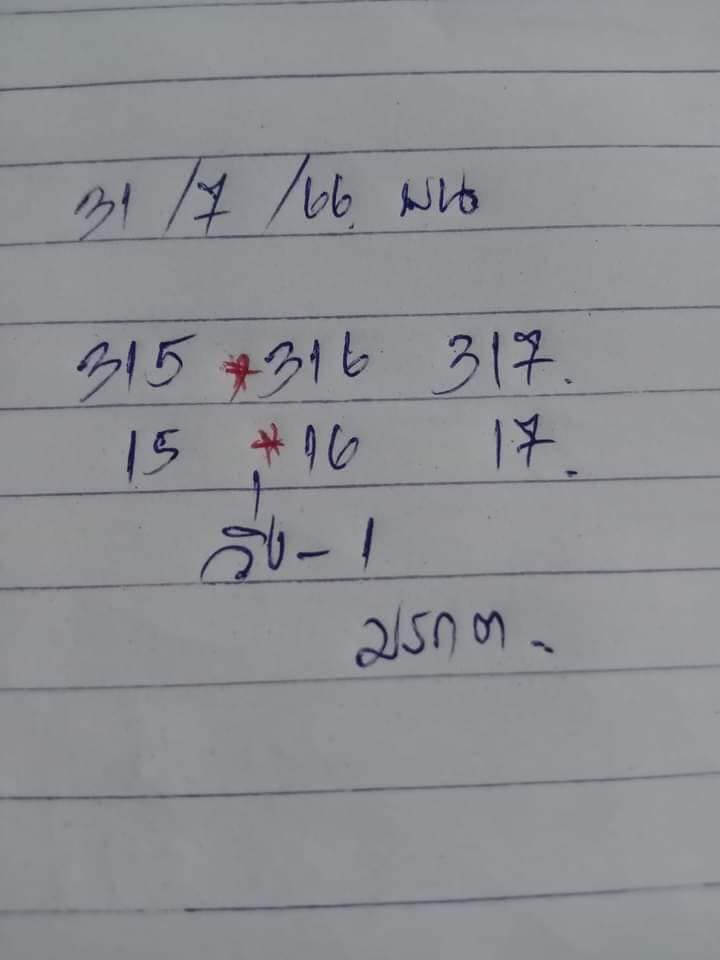 31/7/66 บน
315 *316 317.
15 *16 17.
วิ่ง-1
มรกต.